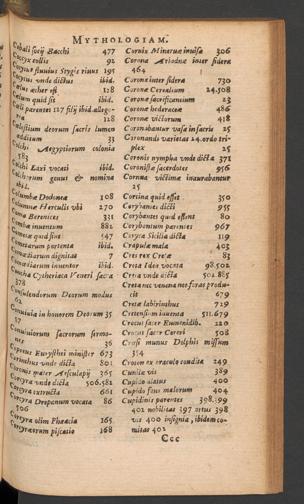 MYTHOLOGIAM.
Cobali socij Bacchi 477
Coccyx collis 92
Cocytus fluuius Stygis riuus 195
Cocytus vnde dictus ibid.
Cœlus æther est 128
Cœlum quid sit ibid.
Cœli parentes 127 filij ibid. allego-
ria 128
Cœlestium deorum sacris lumen
additum 33
Colchi Aegyptiorum colonia
583
Colchi Laxi vocati ibid.
Colchorum genus & nomina
ibid.
Columbæ Dodoneæ 108
Columnæ Herculis vbi 270
Coma Berenices 331
inuentum 882
Cometæ quid sint 547
Cometarum portenta ibid.
dignitas 7
inuentor ibid.
Concha Cythereiaca Veneri sacra
378
Consulendorum Deorum modus
62
Conuiuia in honorem Deorum 35
57
Conuiuiorum sacrorum sermo-
nes 36
Copreus Eurysthei minister 673
Corinthus vnde dicta 801
Coronis mater Aesculapij 365
Corcyra vnde dicta 506.581
Corcyra extructa 661
Corcyra Drepanum vocata 86
506
Corcyra olim Phæacia 165
Corcyræorum piscatio 168
Cornix Mineruæ inuisa 306
Corona Ariadnæ inter sidera
464
Coronæ inter sidera 730
Coronæ Cerealium 24.508
Coronæ sacrificantium 23
Coronæ hederaceæ 486
Coronæ victorum 418
Coronabantur vasa in sacris 25
Coronandi varietas 24. ordo tri-
plex 25
Coronis nympha vnde dicta 371
Coronistæ sacerdotes 956
Cornua victimæ inaurabantur
25
Cortina quid esset 350
Corybantes dicti 955
Corybantes qui essent 80
Corybantum parentes 967
Coryca Sicilia dicta 519
Crapulæ mala 403
Cres rex Cretæ 83
Creta Idæa vocata 98.502
Creta vnde dicta 502.865
Creta nec venena nec feras produ-
cit 679
Cretæ labyrinthus 719
Cretensium inuenta 511.679
Crocus sacer Eumenidib. 220
Crocus sacer Cereri 508
Crœsi munus Delphis missum
354
Crotem ex oraculo condita 249
Cunila vis 389
Cupido alatus 400
Cupido fons malorum 404
Cupidinis parentes 398.399
402 nobilitas 397 ortus 398
vis 400 insignia, ibidem co-
mitas 402
Ccc